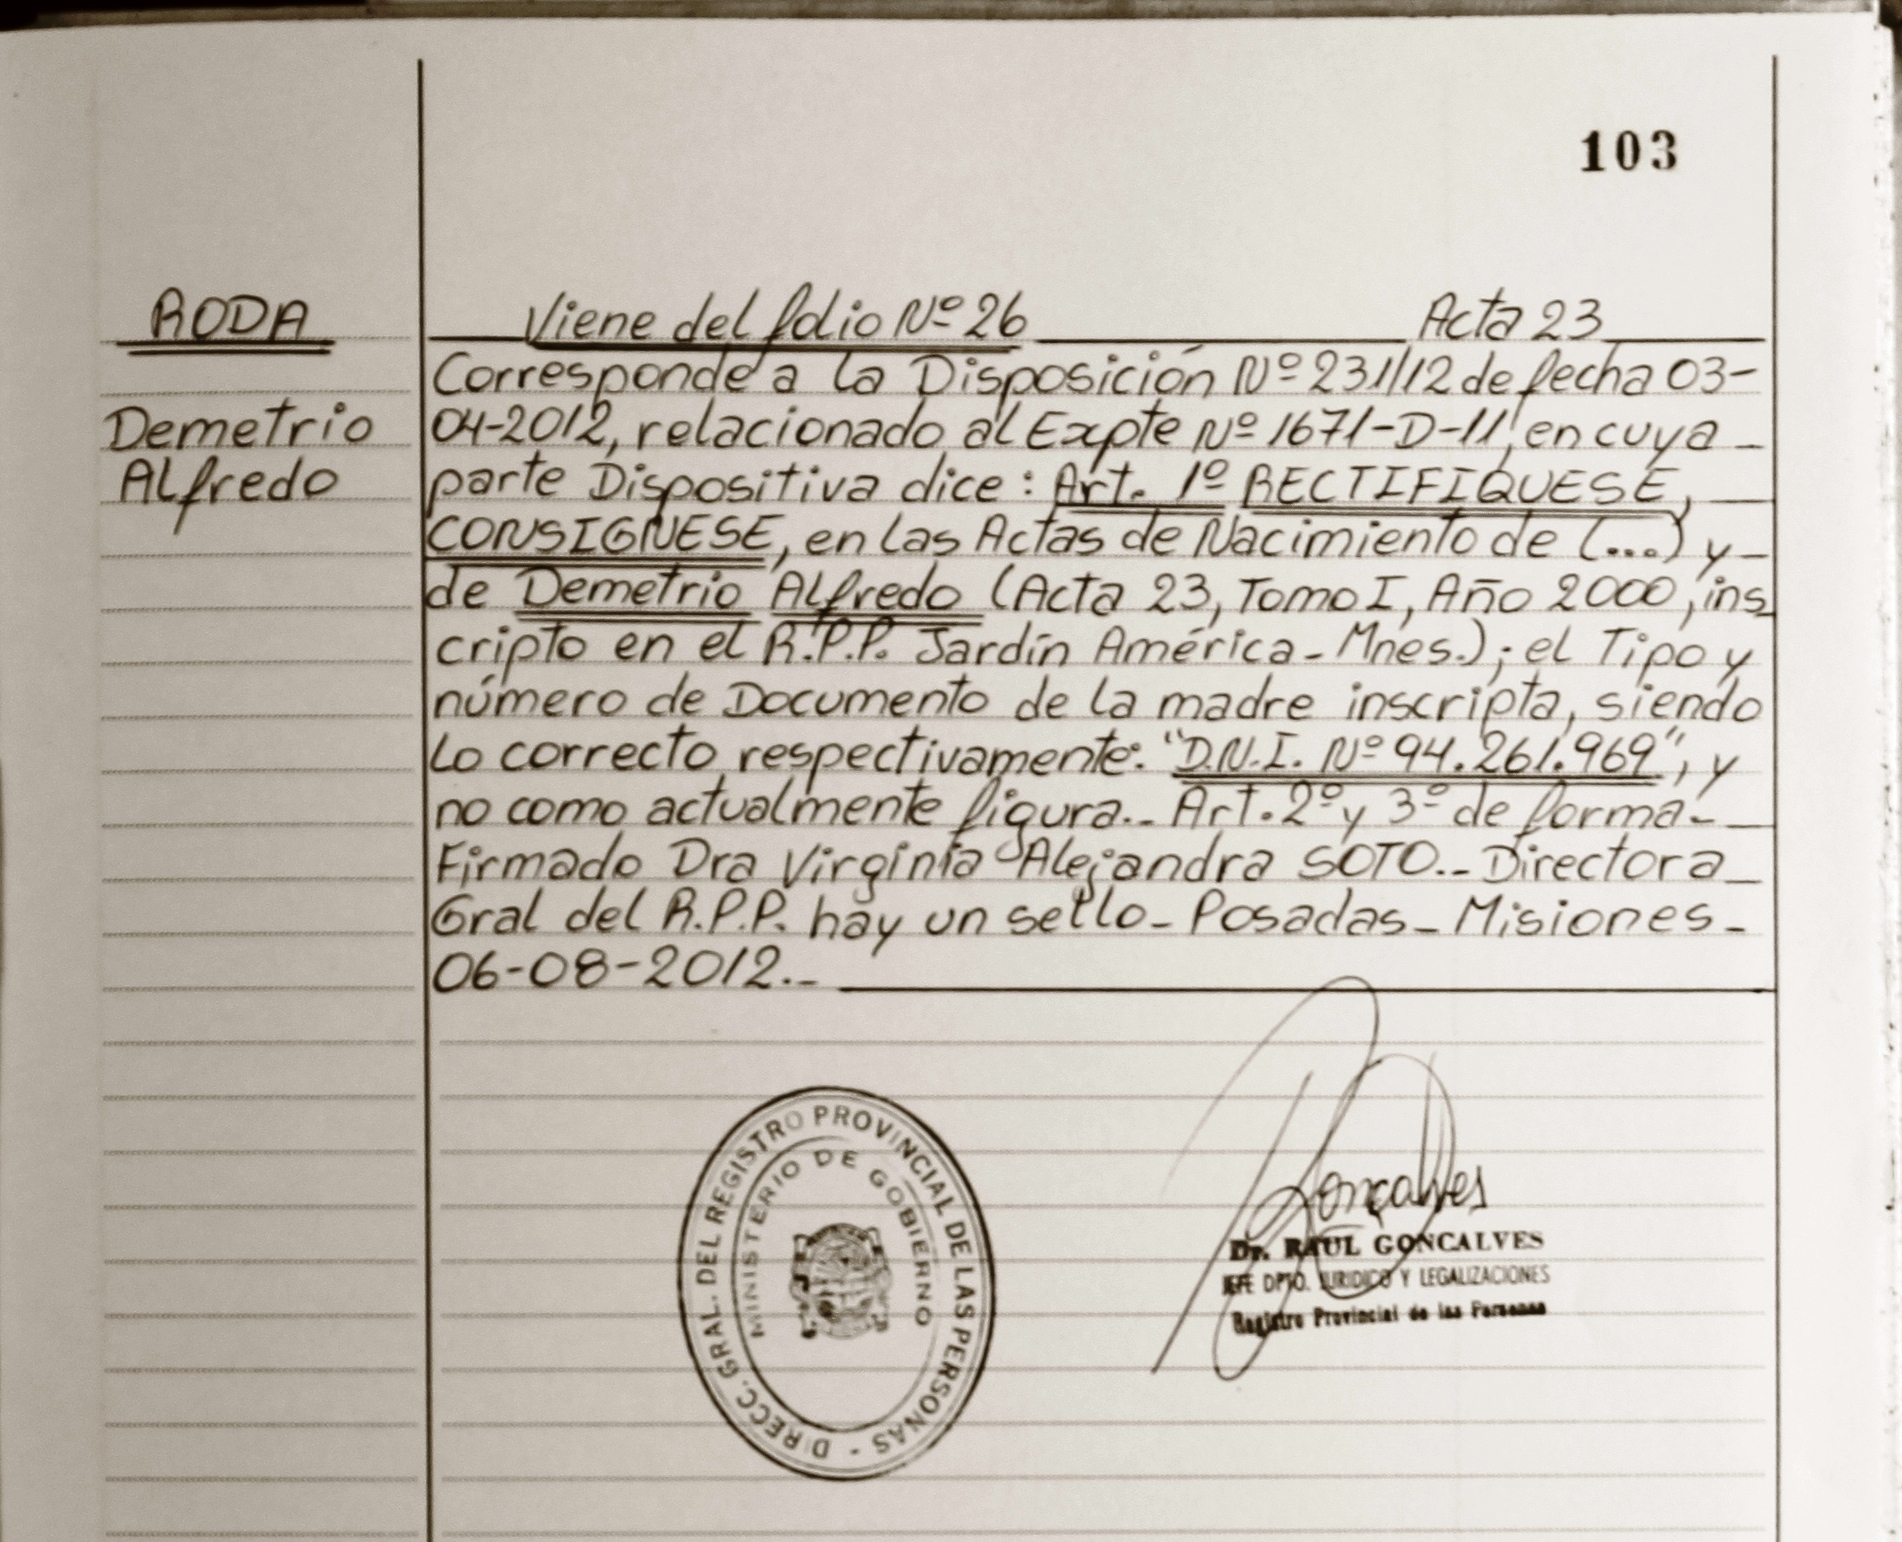 103
RODA
Demetrio
Alfredo
Viene del folio Nº 26 Acta 23
Corresponde a la Disposición Nº 231/12 de fecha 03-
04-2012, relacionado al Expte Nº 1671-D-11, en cuya -
parte Dispositiva dice: Art. 1º RECTIFIQUESE,
CONSIGNESE, en las Actas de Nacimiento de (...) y -
de Demetrio Alfredo (Acta 23, Tomo I, Año 2000, ins
cripto en el R.P.P. Jardín América - Mnes.); el Tipo y
número de Documento de la madre inscripta, siendo
lo correcto respectivamente: "D.N.I. Nº 94.261.969", y
no como actualmente figura.- Art. 2º y 3º de forma -
Firmado Dra Virginia Alejandra SOTO.- Directora -
Gral del R.P.P. hay un sello - Posadas - Misiones -
06-08-2012.-
DIRECC. GRAL. DEL REGISTRO PROVINCIAL DE LAS PERSONAS -
MINISTERIO DE GOBIERNO
Gonçalves
Dr. RAUL GONCALVES
JEFE DPTO. JURIDICO Y LEGALIZACIONES
Registro Provincial de las Personas